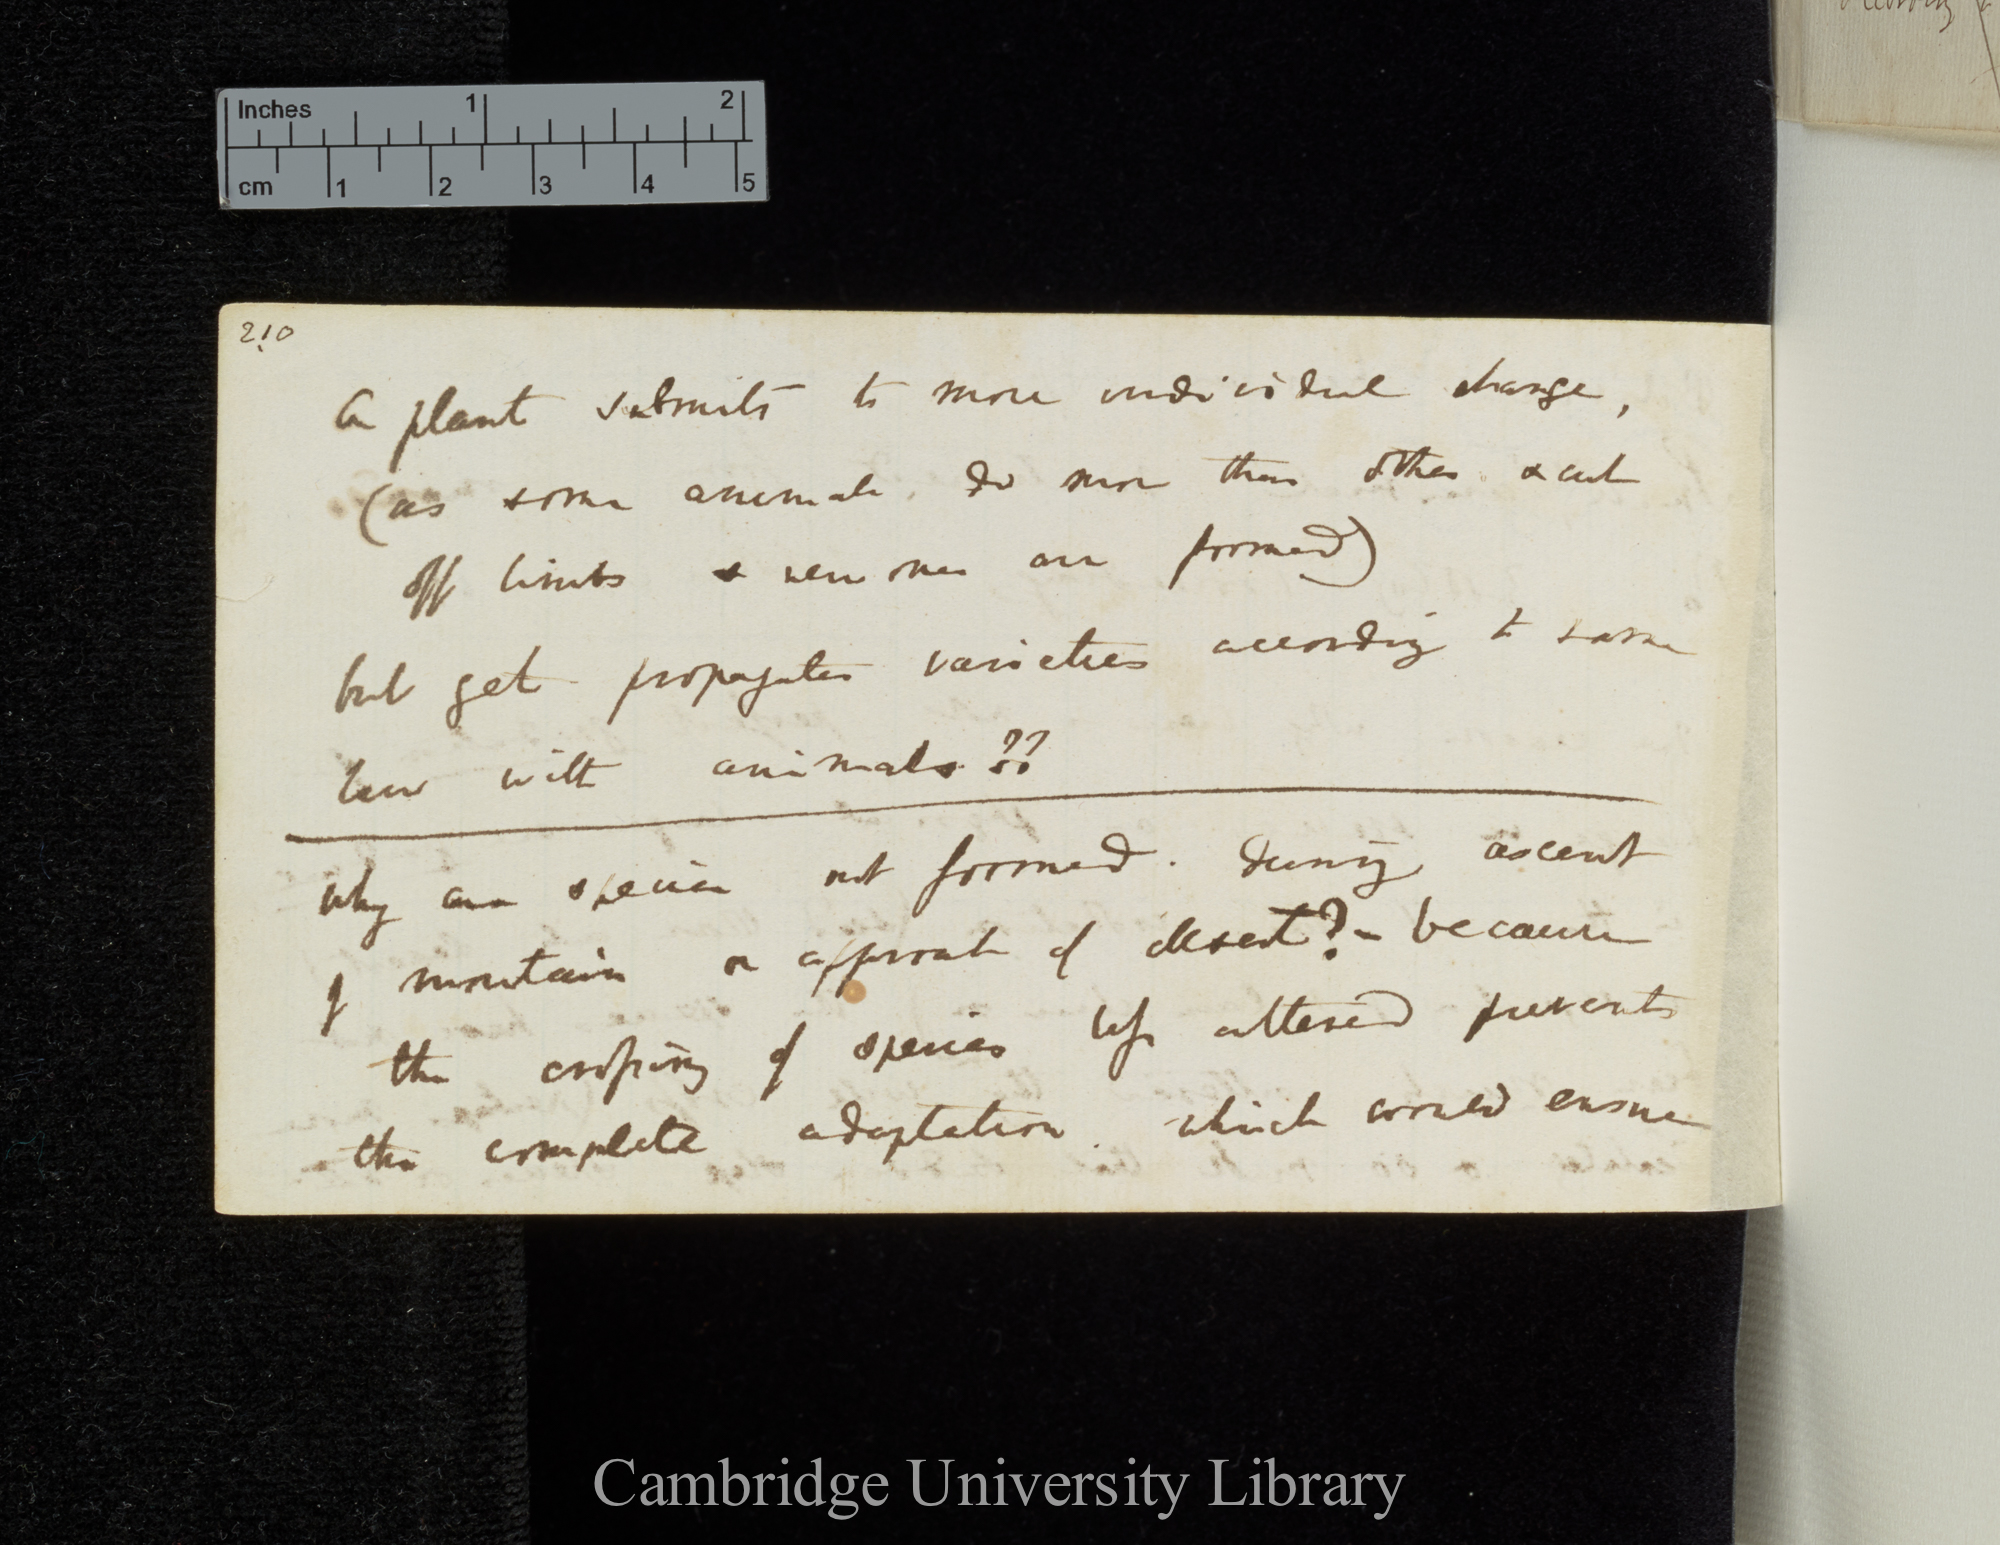 Inches 1 2
cm 1 2 3 4 5
210
A plant submits to more individual change,
(as some animals do more than others & cut
off limbs & new ones are formed)
but yet propagates varieties according to same
law with animals??
Why are species not formed. during ascent
of mountain or approach of desert? – because
the crossing of species less altered prevents
the complete adaptation. which would ensue
Cambridge University Library